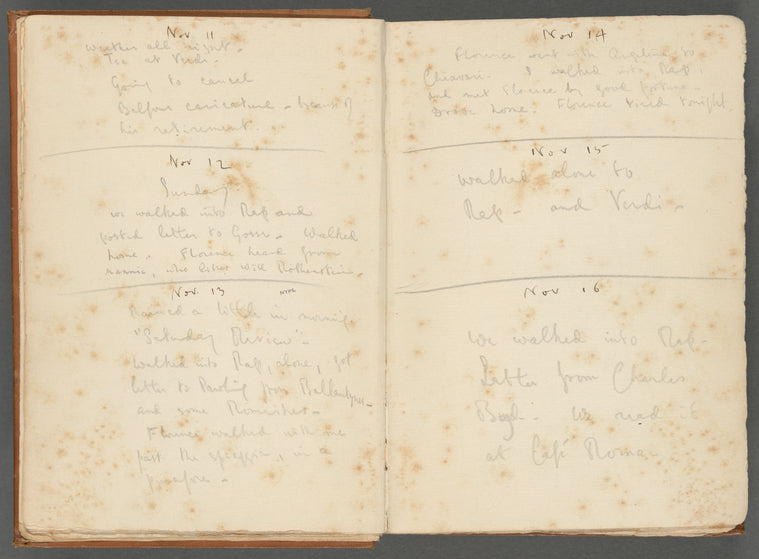 Nov 11
Weather all night.
Tea at Verdi.
Going to cancel
Balfour caricature - because of
his retirement.
Nov 12
Sunday.
we walked into Rap and
posted letter to Gosse. Walked
home. Florence heard from
mamie, who likes Will Rothenstein.
Nov 13
Rained a little in morning.
"Saturday Review" -
Walked into Rap, alone, got
letter to Pawling from Ballantynes -
and some Romeikes -
Florence walked with me
past the spiaggia, in a
pinafore -
Nov 14
Florence went with Angelina to
Chiavari. I walked into Rap,
and met Florence by good fortune -
Drove home. Florence tired tonight.
Nov 15
Walked alone to
Rap - and Verdi -
Nov 16
We walked into Rap -
Letter from Charles
We read it
at Café Roma -